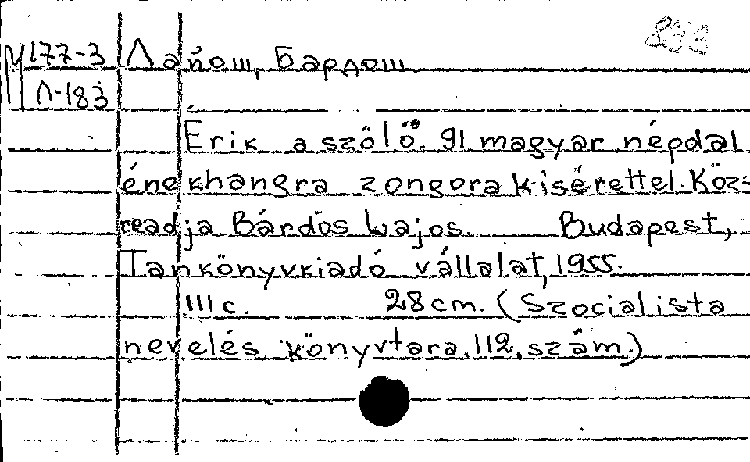 М177-3 Лайош, Бардош
Л-183
Érik a szőlő. 91 magyar népdal
énekhangra zongorakisérettel. Köz-
readja Bárdos Lajos. Budapest,
Tankönyvkiadó vállalat, 1955.
111 c. 28 cm. (Szocialista
nevelés könyvtara, 112, szám.)